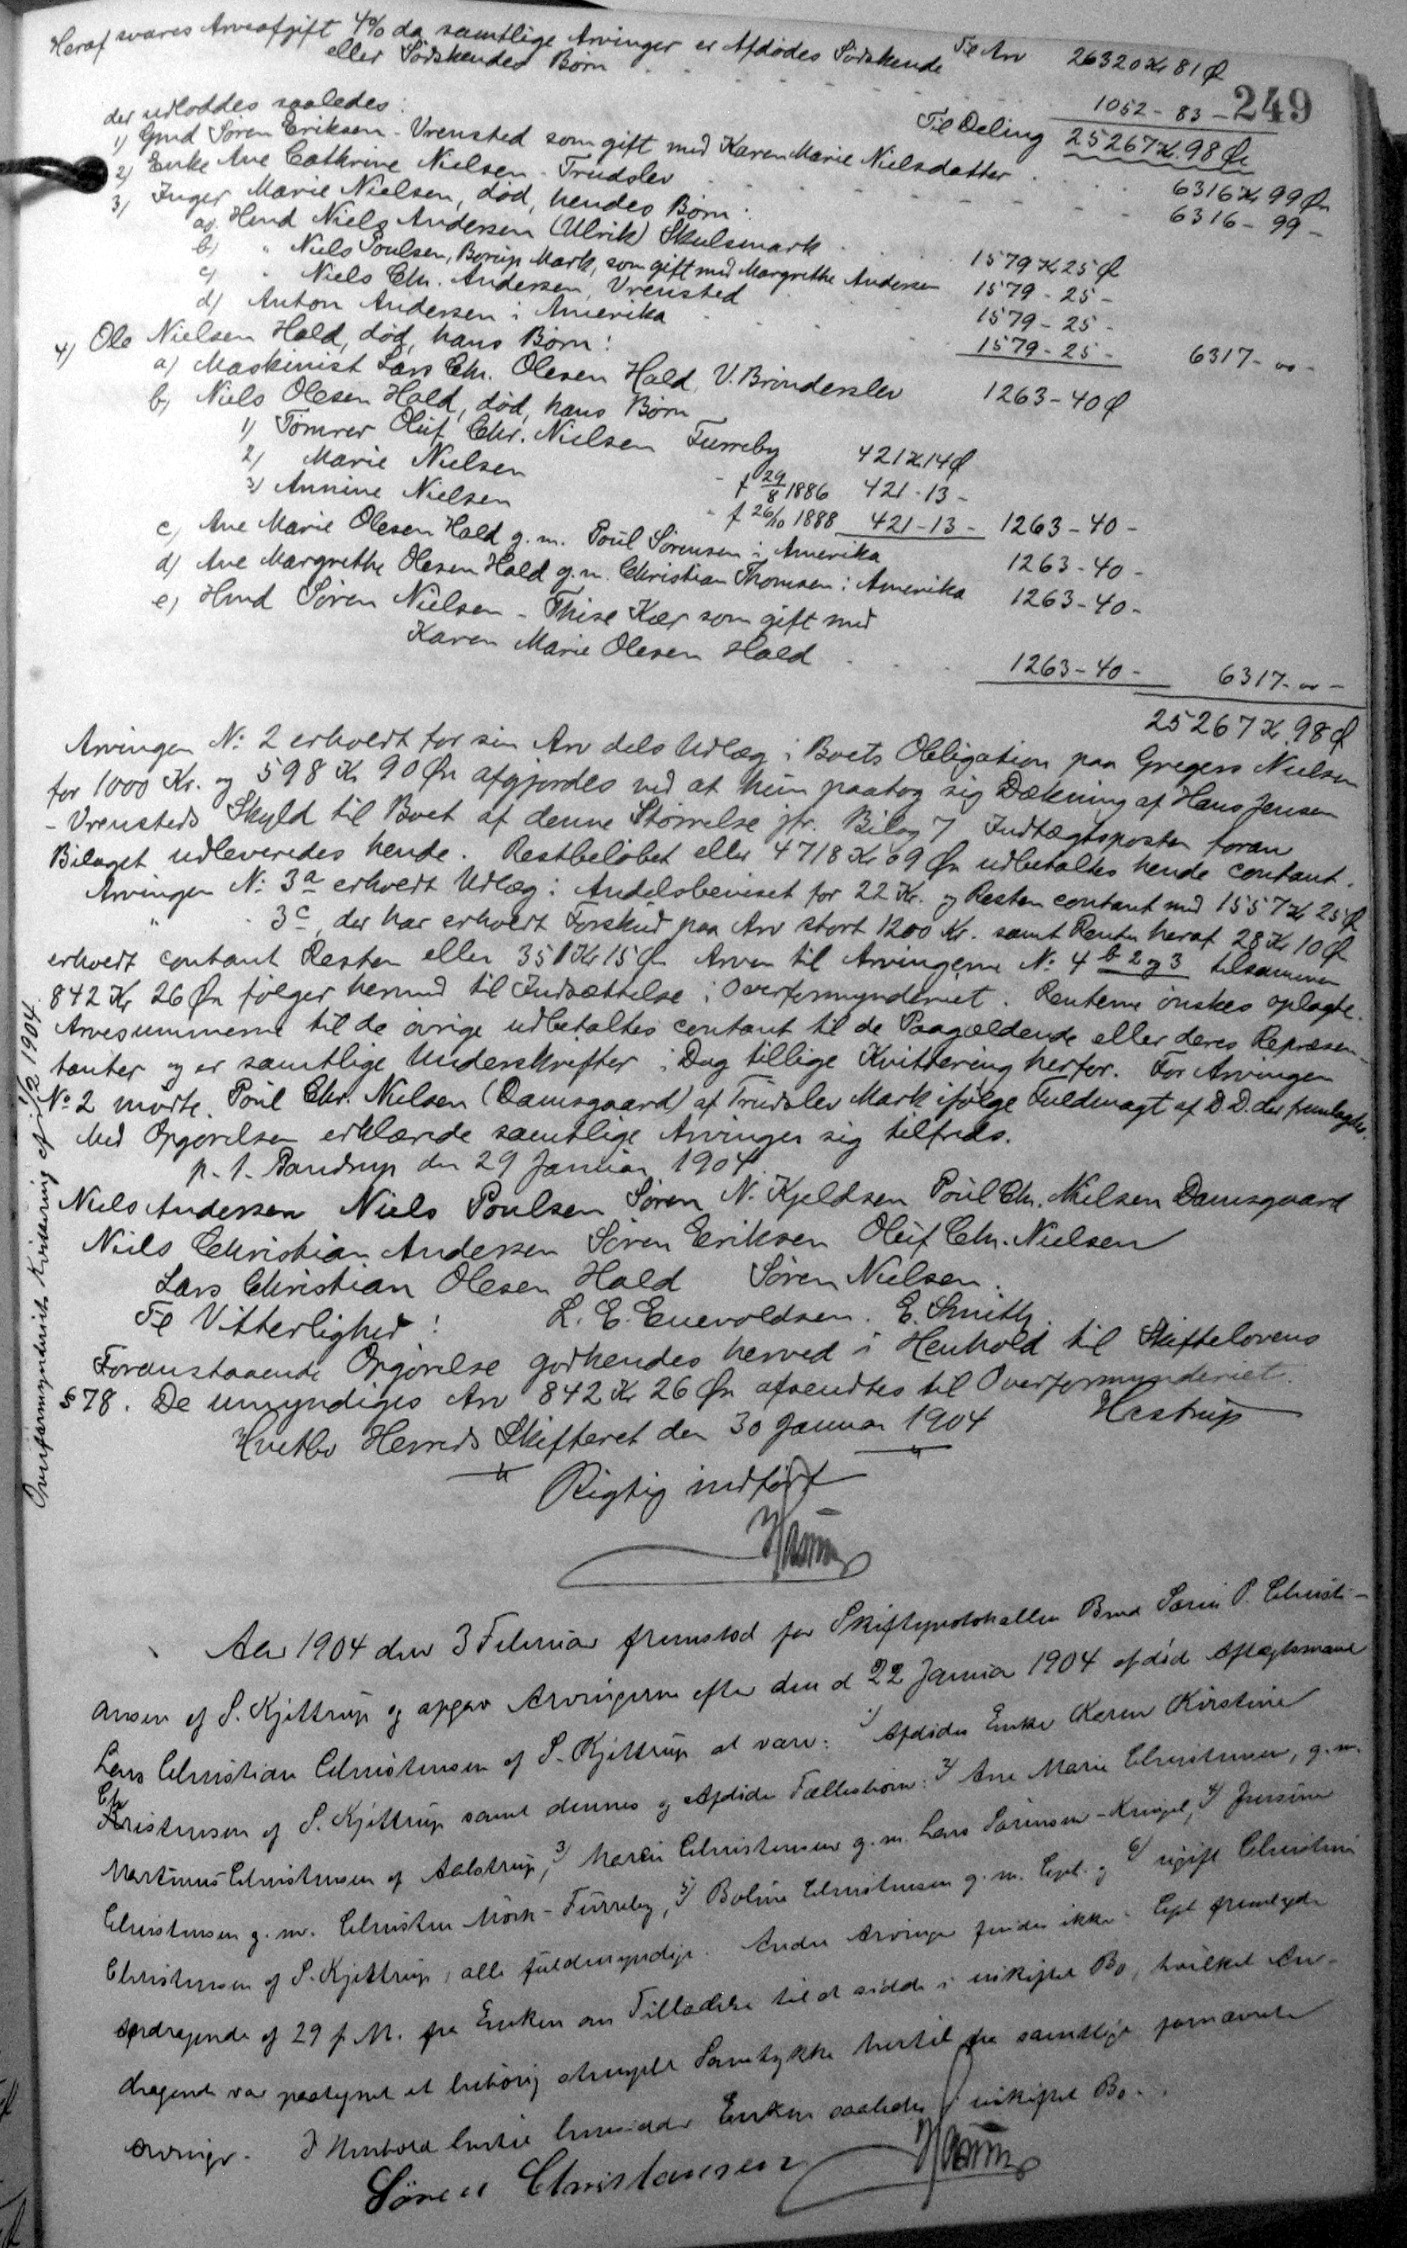 249
Til Arv 26320 Kr 81 Ø
Heraf svares Arveafgift 4% da samtlige Arvinger er Afdødes Södskende
eller Södskendes Børn 1052 - 83 -
Til Deling 25267 Kr. 98 Ør
der udloddes saaledes:
1) Gmd Søren Eriksen - Vrensted som gift med Karen Marie Nielsdatter 6316 Kr 99 Ør
2) Enke Ane Cathrine Nielsen - Trudslev 6316 - 99 -
3) Inger Marie Nielsen, død, hendes Børn:
a) Hmd Niels Andersen (Ulrik) Skulsmark 1579 Kr 25 Ø
b) " Niels Poulsen, Borup Mark, som gift med Margrethe Andersen 1579 - 25 -
c) " Niels Chr. Andersen, Vrensted 1579 - 25 -
d) Anton Andersen i Amerika 1579 - 25 - 6317 - " -
4) Ole Nielsen Hald, død, hans Børn:
a) Maskinist Lars Chr. Olesen Hald, V. Brønderslev 1263 - 40 Ø
b) Niels Olesen Hald, død, hans Børn
1) Tømrer Oluf Chr. Nielsen Furreby 421 Kr 14 Ø
2) Marie Nielsen - f 29/8 1886 421 - 13 -
3) Annine Nielsen - f 26/10 1888 421 - 13 - 1263 - 40 -
c) Ane Marie Olesen Hald g. m. Poul Sörensen i Amerika 1263 - 40 -
d) Ane Margrethe Olesen Hald g. m. Christian Thomsen i Amerika 1263 - 40 -
e) Hmd Søren Nielsen - Thise Kær som gift med
Karen Marie Olesen Hald 1263 - 40 - 6317 - " -
25267 Kr. 98 Ø
Arvingen No 2 erholdt for sin Arv dels Udlæg i Boets Obligation paa Gregers Nielsen
for 1000 Kr. og 598 Kr 90 Ør afgjordes ved at hun paatog sig Dækning af Hans Jensen
- Vrensteds Skyld til Boet af denne Størrelse jfr. Bilag 7 Indtægtsposten foran
Bilaget udleveredes hende. Restbeløbet eller 4718 Kr 09 Ør udbetaltes hende contant.
Arvingen No 3a erholdt Udlæg i Andelsbeviset for 22 Kr. og Resten contant med 1557 Kr 25 Ø
" 3c, der har erholdt Forskud paa Arv stort 1200 Kr. samt Renter heraf 28 Kr 10 Ør
erholdt contant Resten eller 351 Kr 15 Ør Arven til Arvingerne No 4 b 2 og 3 tilsammen
842 Kr 26 Ør følger hermed til Indsættelse i Overformynderiet. Renterne ønskes oplagte.
Arvesummerne til de øvrige udbetaltes contant til de Paagældende eller deres Repræsen-
tanter og er samtlige Underskrifter i Dag tillige Kvittering herfor. For Arvingen
No 2 mødte Poul Chr. Nielsen (Damsgaard) af Trudslev Mark ifølge Fuldmagt af D.D. der fremlagdes.
Med Opgørelsen erklærede samtlige Arvinger sig tilfreds.
p. t. Pandrup den 29 Januar 1904.
Niels Andersen Niels Poulsen Søren N. Kjeldsen Poul Chr. Nielsen Damsgaard
Niels Christian Andersen Søren Eriksen Oluf Chr. Nielsen
Lars Christian Olesen Hald Søren Nielsen.
Til Vitterlighed: L. E. Enevoldsen. E. Smith.
Foranstaaende Opgørelse godkendes herved i Henhold til Skiftelovens
§78. De umyndiges Arv 842 Kr 26 Ør afsendtes til Overformynderiet.
Hvetbo Herreds Skifteret den 30 Januar 1904 Hastrup
Rigtig indført
Hastrup
Overformynderiets Kvittering af 1/2 1904.
Aar 1904 den 3 Februar fremstod for Skifteprotokollen Bmd Søren P. Christi-
ansen af S. Kjettrup og opgav Arvingerne efter den d 22 Januar 1904 afdød Aftægtsmand
Lars Christian Christensen af S. Kjettrup at være: 1) Afdødes Enke Karen Kirstine
Christensen af S. Kjettrup samt dennes og Afdødes Fællesbørn: 2) Ane Marie Christensen, g. m.
Martinus Christensen af Aalstrup, 3) Maren Christensen g. m. Lars Sørensen - Kringel, 4) Jensine
Christensen g. m. Christen Mørk - Furreby, 5) Boline Christensen g. m. Cpt. og 6) ugift Christine
Christensen af S. Kjettrup, alle fuldmyndige. Andre Arvinger findes ikke. Cpt fremlagde
Andragende af 29 f. M. fra Enken om Tilladelse til at sidde i uskiftet Bo, hvilket An-
dragende var paategnet et behørig Samtykke hertil fra samtlige fornævnte
Arvinger. I Henhold hertil hensidder Enken saaledes i uskiftet Bo.
Søren Christiansen Hastrup